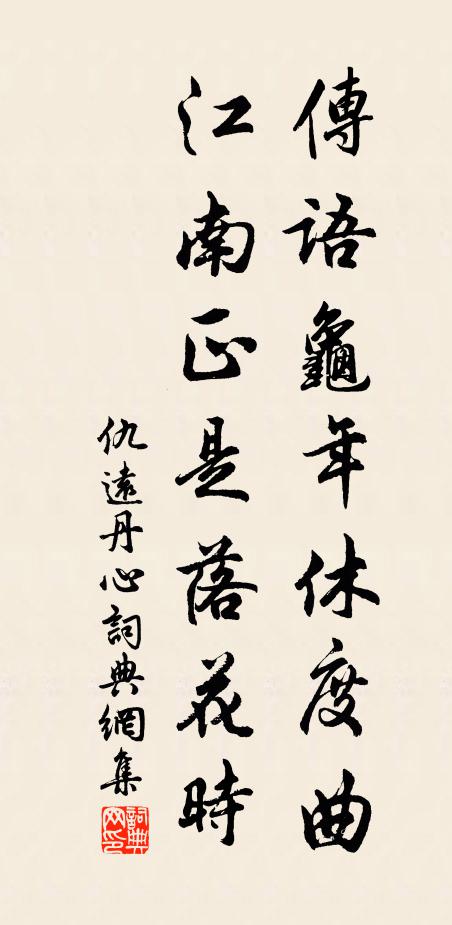 傳語龜年休度曲
江南正是落花時
仇遠丹心詞典網集
詞典網印